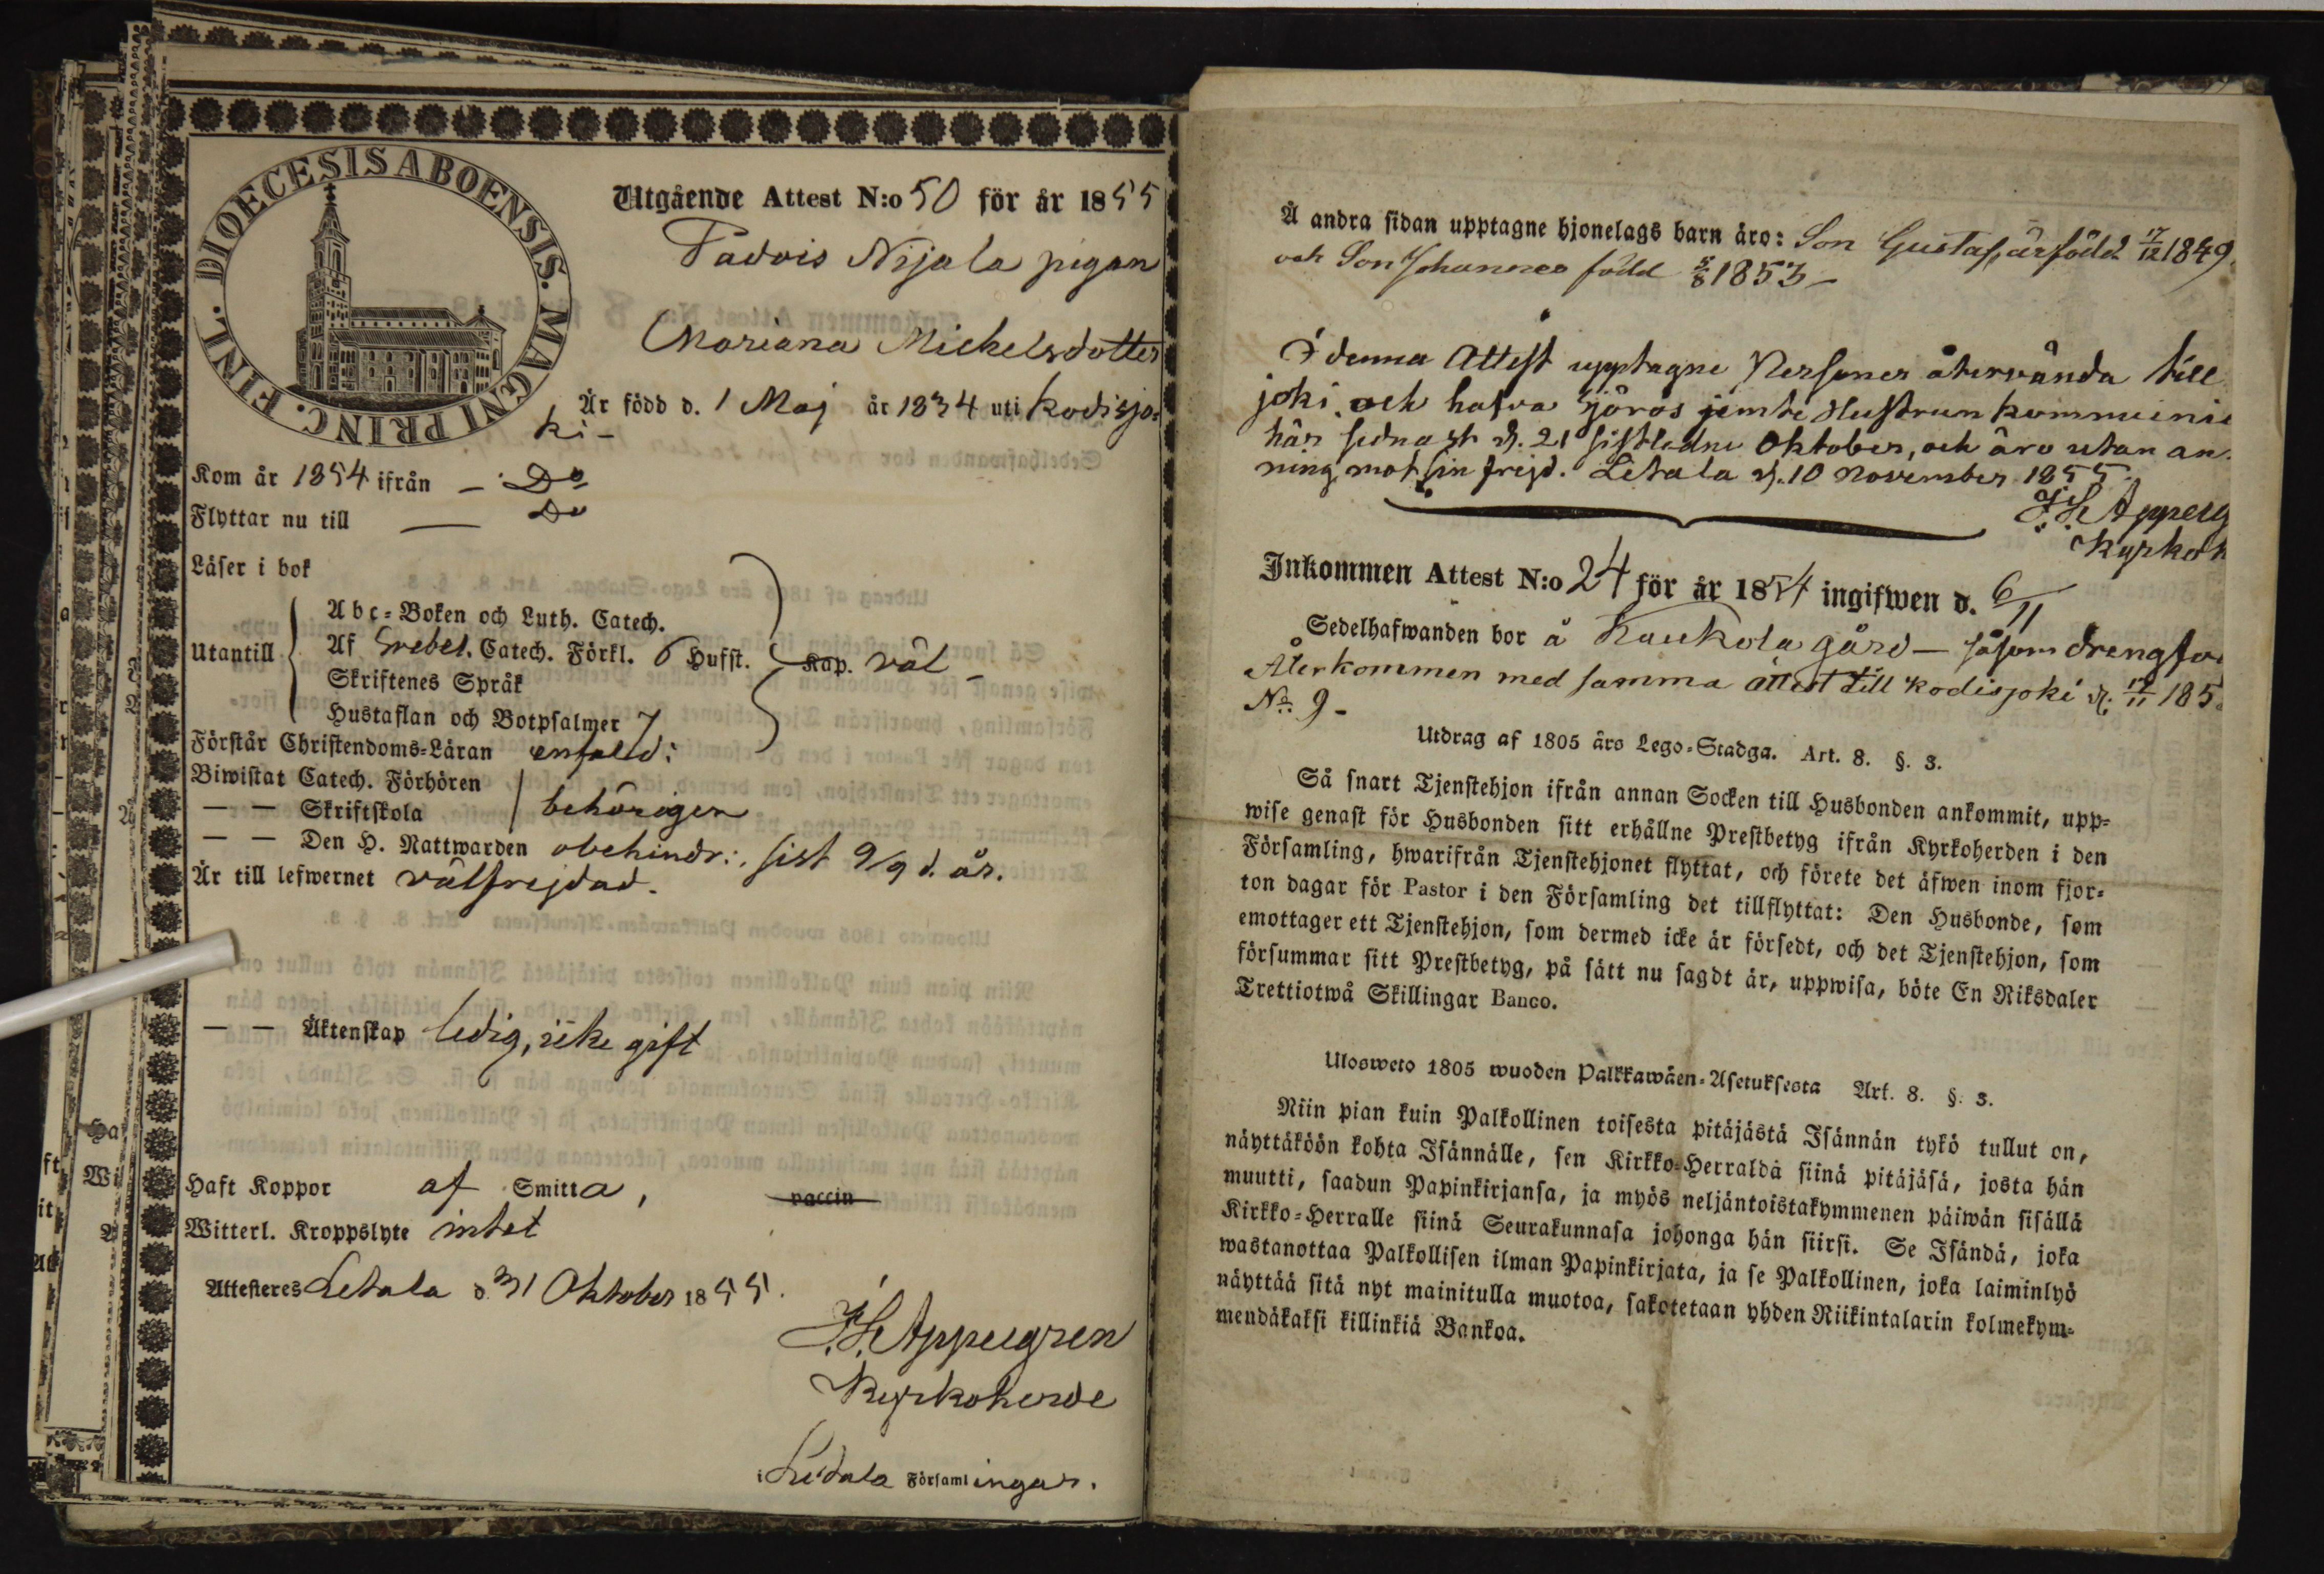 DIOECESIS ABOENSIS. MAGNI PRINC. FINL.
Utgående Attest N:o 50 för år 1855
Padvis Nijala pigan
Mariana Michelsdotter
Är född d. 1 Maj år 1834 uti Kodisjo=
ki -
Kom år 1854 ifrån - Do
Flyttar nu till — Do
Läser i bok
Utantill
Abc-Boken och Luth. Catech.
Af Svebel. Catech. Förkl. 6 Hufst.
Kap. väl -
Skriftenes Språk
Hustaflan och Botpsalmer 7
Förstår Christendoms-Läran enfald:
Biwistat Catech. Förhören
— — Skriftskola
behörigen
— — Den H. Nattwarden obehindr:, sist 9/9 d. år.
Är till lefwernet välfrejdad.
— — Äktenskap ledig, icke gift
Haft Koppor af Smitta, vaccin
Witterl. Kroppslyte intet
Attesteres Letala d. 31 Oktober 1855.
F.H. Appelgren
Kyrkoherde
i Letala Församlingar.
Å andra sidan upptagne hjonelags barn äro: Son Gustaf, är född 17/12 1849
och Son Johannes född 1853 -
I denna Attest upptagne Personer återvända till
joki, och hafva hjonelag jemte Hustrun
här sednast d. 21 sistledne Oktober, och äro utan an
ning mot sin frejd. Letala d. 10 November 1855.
F.H. Appelg
Kyrkoh
Inkommen Attest N:o 24 för år 1854 ingifwen d. 6/11
Sedelhafwanden bor å Kaukola gård — såsom dreng
Återkommen med samma attest till Kodisjoki d. /11 185
No 9 -
Utdrag af 1805 års Lego-Stadga. Art. 8. §. 3.
Så snart Tjenstehjon ifrån annan Socken till Husbonden ankommit, upp=
wise genast för Husbonden sitt erhållne Prestbetyg ifrån Kyrkoherden i den
Församling, hwarifrån Tjenstehjonet flyttat, och förete det äfwen inom fjor=
ton dagar för Pastor i den Församling det tillflyttat: Den Husbonde, som
emottager ett Tjenstehjon, som dermed icke är försedt, och det Tjenstehjon, som
försummar sitt Prestbetyg, på sätt nu sagdt är, uppwisa, böte En Riksdaler
Trettiotwå Skillingar Banco.
Ulosweto 1805 wuoden Palkkawäen-Asetuksesta Art. 8. §. 3.
Niin pian kuin Palkollinen toisesta pitäjästä Isännän tykö tullut on,
näyttäköön kohta Isännälle, sen Kirkko-Herralda siinä pitäjäsä, josta hän
muutti, saadun Papinkirjansa, ja myös neljäntoistakymmenen päiwän sisällä
Kirkko-Herralle siinä Seurakunnasa johonga hän siirsi. Se Isändä, joka
wastanottaa Palkollisen ilman Papinkirjata, ja se Palkollinen, joka laiminlyö
näyttää sitä nyt mainitulla muotoa, sakotetaan yhden Riikintalarin kolmekym=
mendäkaksi killinkiä Bankoa.